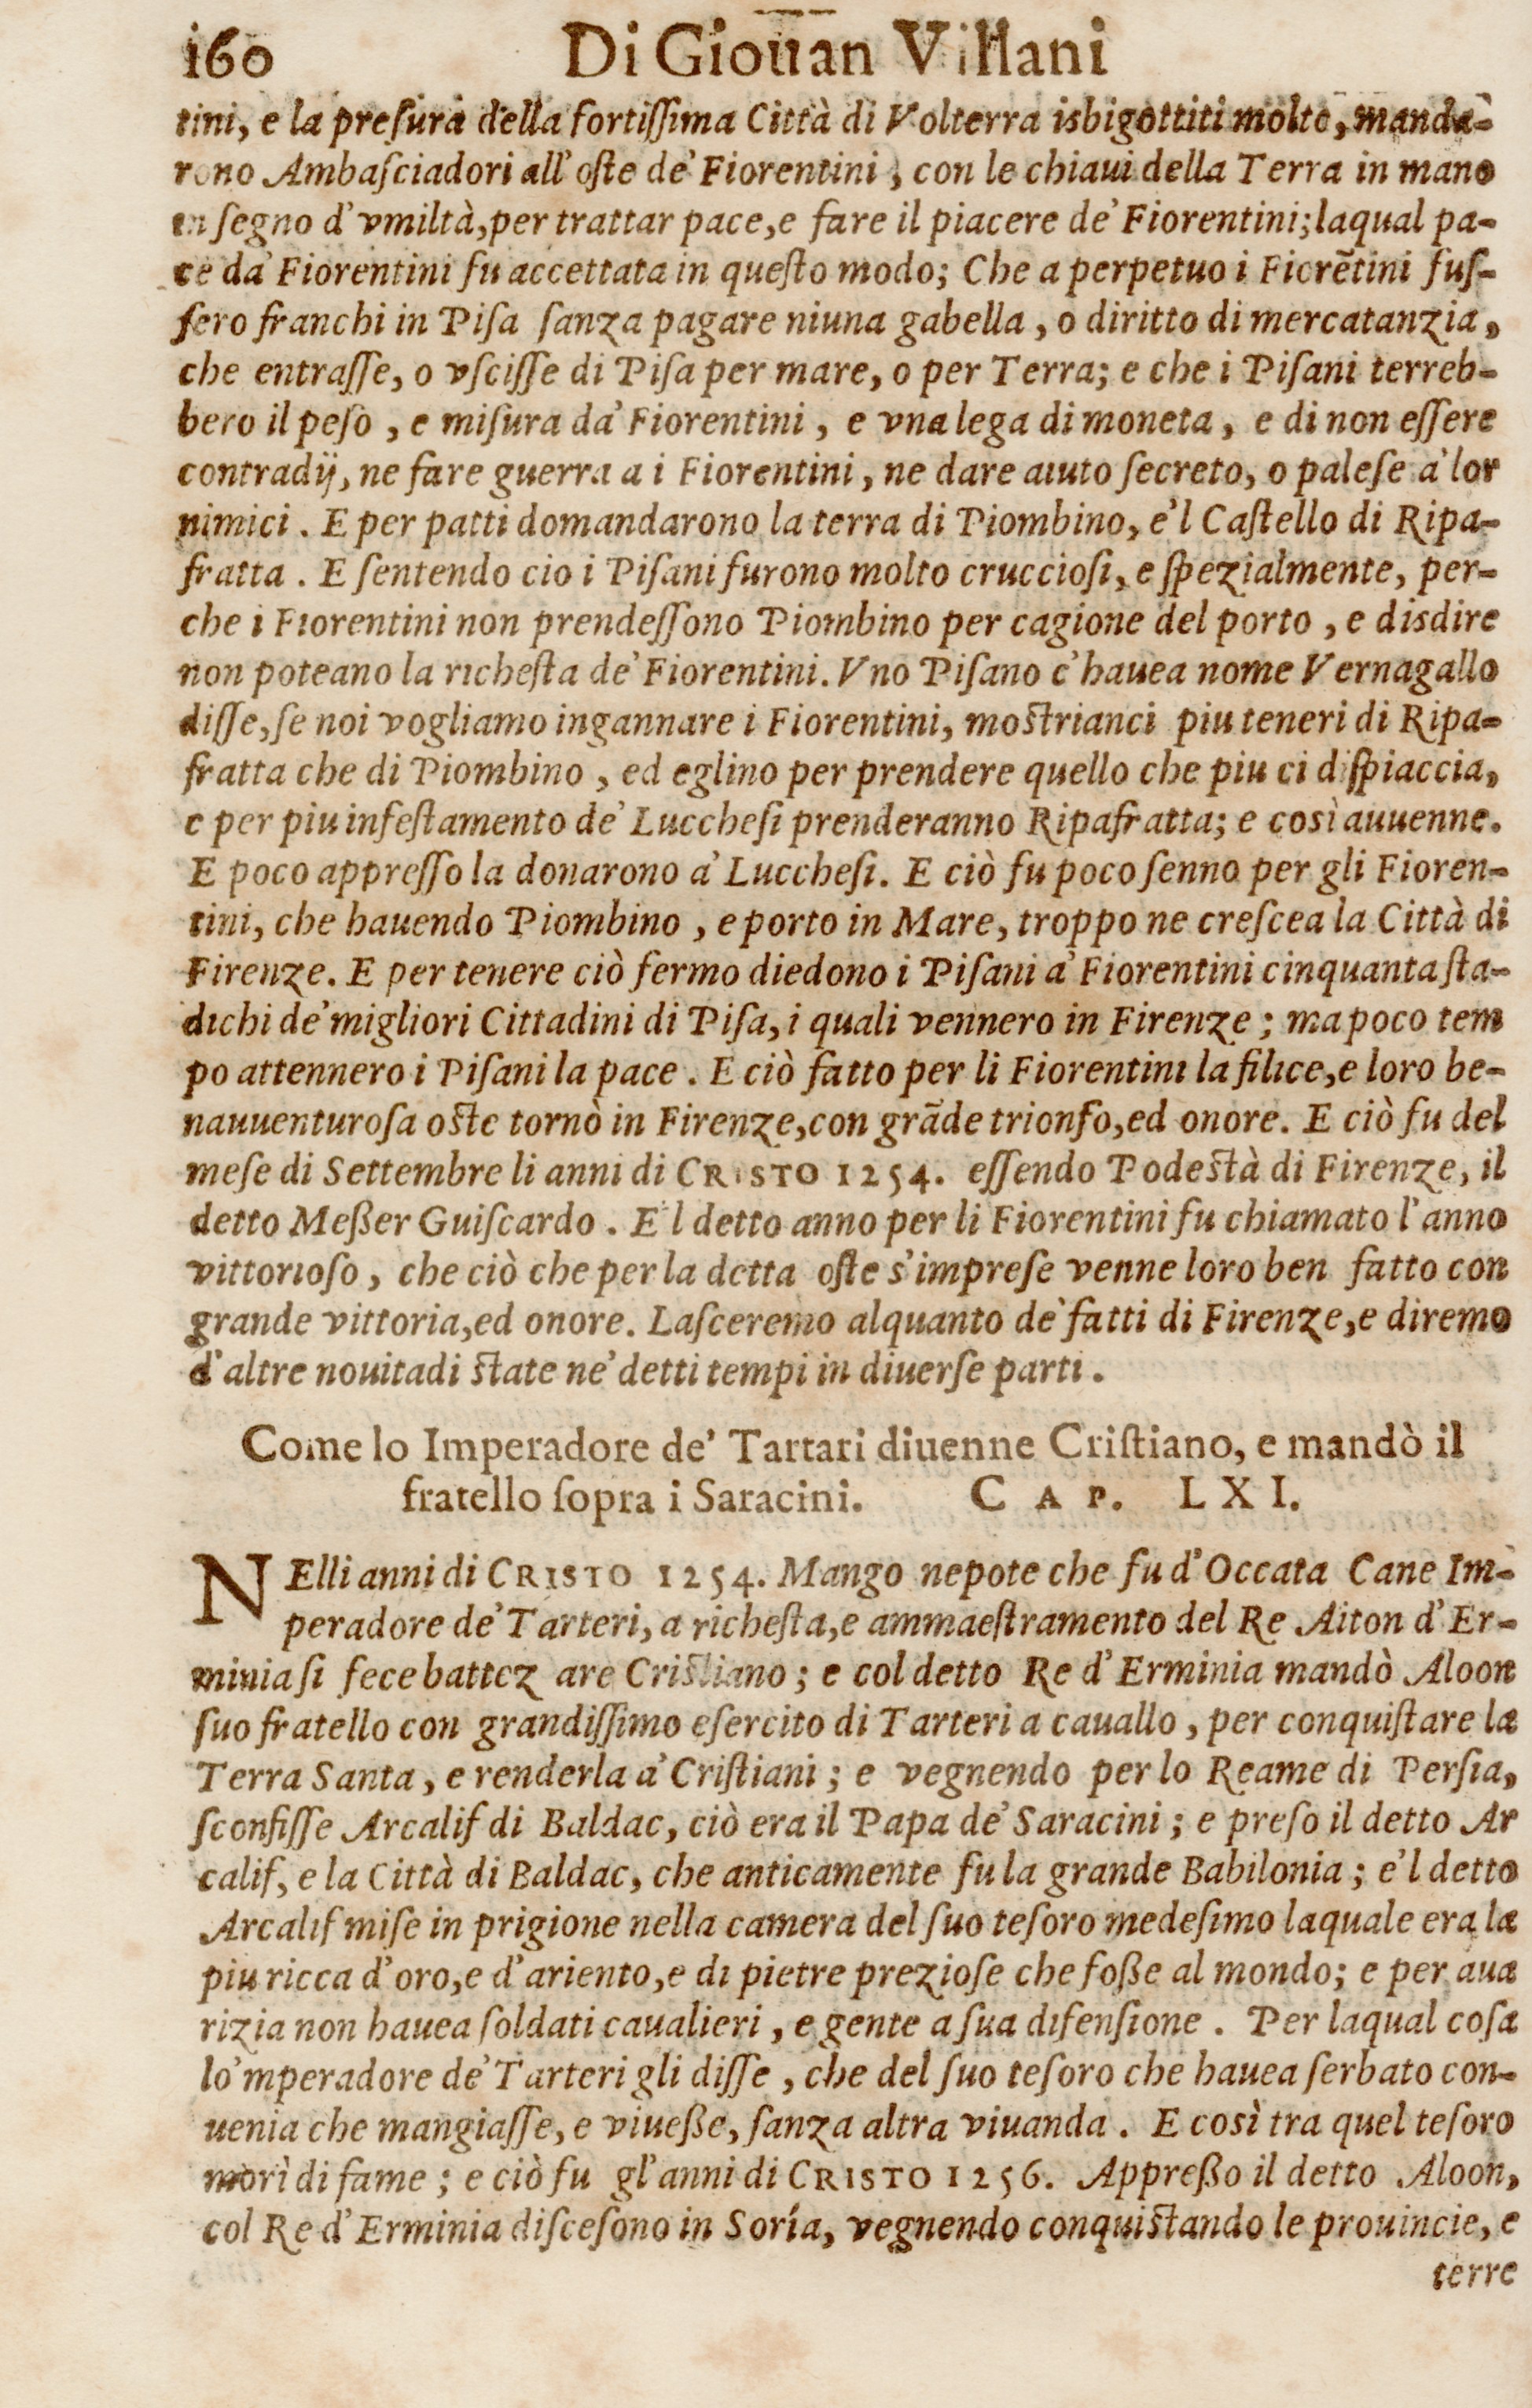 160 Di Giouan Villani
tini, e la preſura della fortiſſima Città di Volterra isbigottiti molto, manda-
rono Ambaſciadori all'oſte de' Fiorentini, con le chiaui della Terra in mano
in ſegno d'vmiltà, per trattar pace, e fare il piacere de' Fiorentini; laqual pa-
ce da' Fiorentini fu accettata in queſto modo; Che a perpetuo i Fiorẽtini fuſ-
ſero franchi in Piſa ſanza pagare niuna gabella, o diritto di mercatanzia,
che entraſſe, o vſciſſe di Piſa per mare, o per Terra; e che i Piſani terreb-
bero il peſo, e miſura da' Fiorentini, e vna lega di moneta, e di non eſſere
contradij, ne fare guerra a i Fiorentini, ne dare aiuto ſecreto, o paleſe a' lor
nimici. E per patti domandarono la terra di Piombino, e'l Caſtello di Ripa-
fratta. E ſentendo cio i Piſani furono molto crucciosi, e ſpezialmente, per-
che i Fiorentini non prendeſſono Piombino per cagione del porto, e disdire
non poteano la richeſta de' Fiorentini. Vno Piſano c'hauea nome Vernagallo
diſſe, ſe noi vogliamo ingannare i Fiorentini, moſtrianci piu teneri di Ripa-
fratta che di Piombino, ed eglino per prendere quello che piu ci diſpiaccia,
e per piu infeſtamento de' Luccheſi prenderanno Ripafratta; e così auuenne.
E poco appreſſo la donarono a' Luccheſi. E ciò fu poco ſenno per gli Fioren-
tini, che hauendo Piombino, e porto in Mare, troppo ne creſcea la Città di
Firenze. E per tenere ciò fermo diedono i Piſani a' Fiorentini cinquanta ſta-
dichi de' migliori Cittadini di Piſa, i quali vennero in Firenze; ma poco tem
po attennero i Piſani la pace. E ciò fatto per li Fiorentini la filice, e loro be-
nauuenturoſa oſte tornò in Firenze, con grãde trionfo, ed onore. E ciò fu del
meſe di Settembre li anni di CRISTO 1254. eſſendo Podeſtà di Firenze, il
detto Meßer Guiſcardo. E'l detto anno per li Fiorentini fu chiamato l'anno
vittorioſo, che ciò che per la detta oſte s'impreſe venne loro ben fatto con
grande vittoria, ed onore. Laſceremo alquanto de' fatti di Firenze, e diremo
d'altre nouitadi ſtate ne' detti tempi in diuerſe parti.
Come lo Imperadore de' Tartari diuenne Criſtiano, e mandò il
fratello ſopra i Saracini. CAP. LXI.
NElli anni di CRISTO 1254. Mango nepote che fu d'Occata Cane Im-
peradore de' Tarteri, a richeſta, e ammaeſtramento del Re Aiton d'Er-
minia ſi fece battez are Criſtiano; e col detto Re d'Erminia mandò Aloon
ſuo fratello con grandiſſimo eſercito di Tarteri a cauallo, per conquiſtare la
Terra Santa, e renderla a' Criſtiani; e vegnendo per lo Reame di Perſia,
ſconfiſſe Arcalif di Baldac, ciò era il Papa de' Saracini; e preſo il detto Ar
calif, e la Città di Baldac, che anticamente fu la grande Babilonia; e'l detto
Arcalif miſe in prigione nella camera del ſuo teſoro medeſimo laquale era la
piu ricca d'oro, e d'ariento, e di pietre prezioſe che foße al mondo; e per aua
rizia non hauea ſoldati caualieri, e gente a ſua difenſione. Per laqual coſa
lo'mperadore de' Tarteri gli diſſe, che del ſuo teſoro che hauea ſerbato con-
uenia che mangiaſſe, e viueße, ſanza altra viuanda. E così tra quel teſoro
morì di fame; e ciò fu gl'anni di CRISTO 1256. Appreßo il detto Aloon,
col Re d'Erminia diſceſono in Soría, vegnendo conquiſtando le prouincie, e
terre